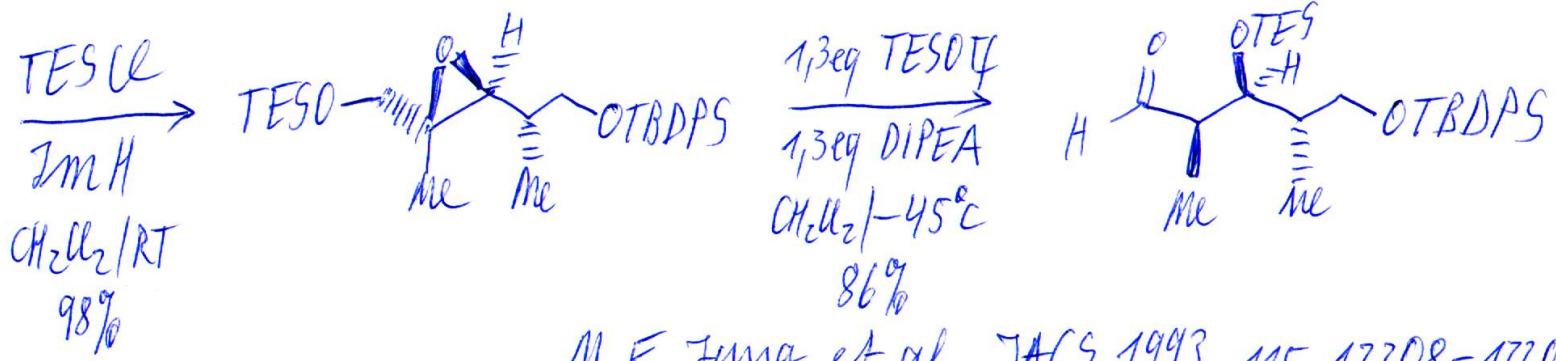 TESCl
ImH
CH₂Cl₂/RT
98%
TESO
O
H
Me
Me
OTBDPS
1,3eq TESOTf
1,3eq DIPEA
CH₂Cl₂/-45°C
86%
O
H
OTES
H
Me
Me
OTBDPS
M.E. Jung et al. JACS 1993, 115, 12208-